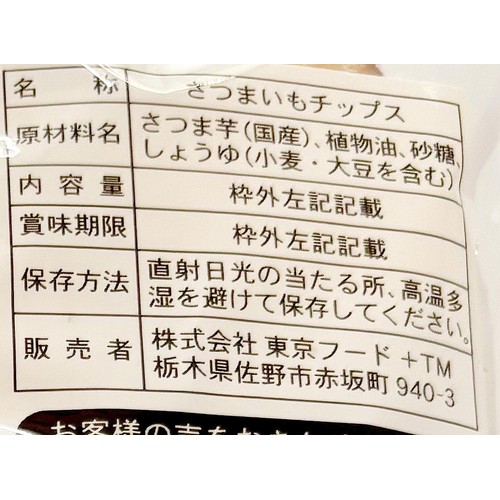 名称 さつまいもチップス
原材料名 さつま芋(国産)、植物油、砂糖、
しょうゆ(小麦・大豆を含む)
内容量 枠外左記記載
賞味期限 枠外左記記載
保存方法 直射日光の当たる所、高温多
湿を避けて保存してください。
販売者 株式会社 東京フード +TM
栃木県佐野市赤坂町 940-3
お客様の声をおき